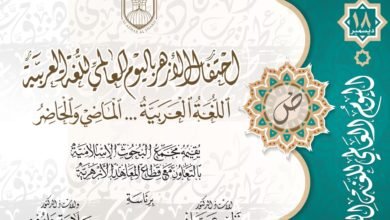 ١٨
ديسمبر
احتفال الأزهر باليوم العالمي للغة العربية
اللغة العربية ... الماضي والحاضر
ض
يقيمه مجمع البحوث الإسلامية
بالتعاون مع قطاع المعاهد الأزهرية
برئاسة
الأستاذ الدكتور
والأستاذ الدكتور
اليوم العالمي للغة